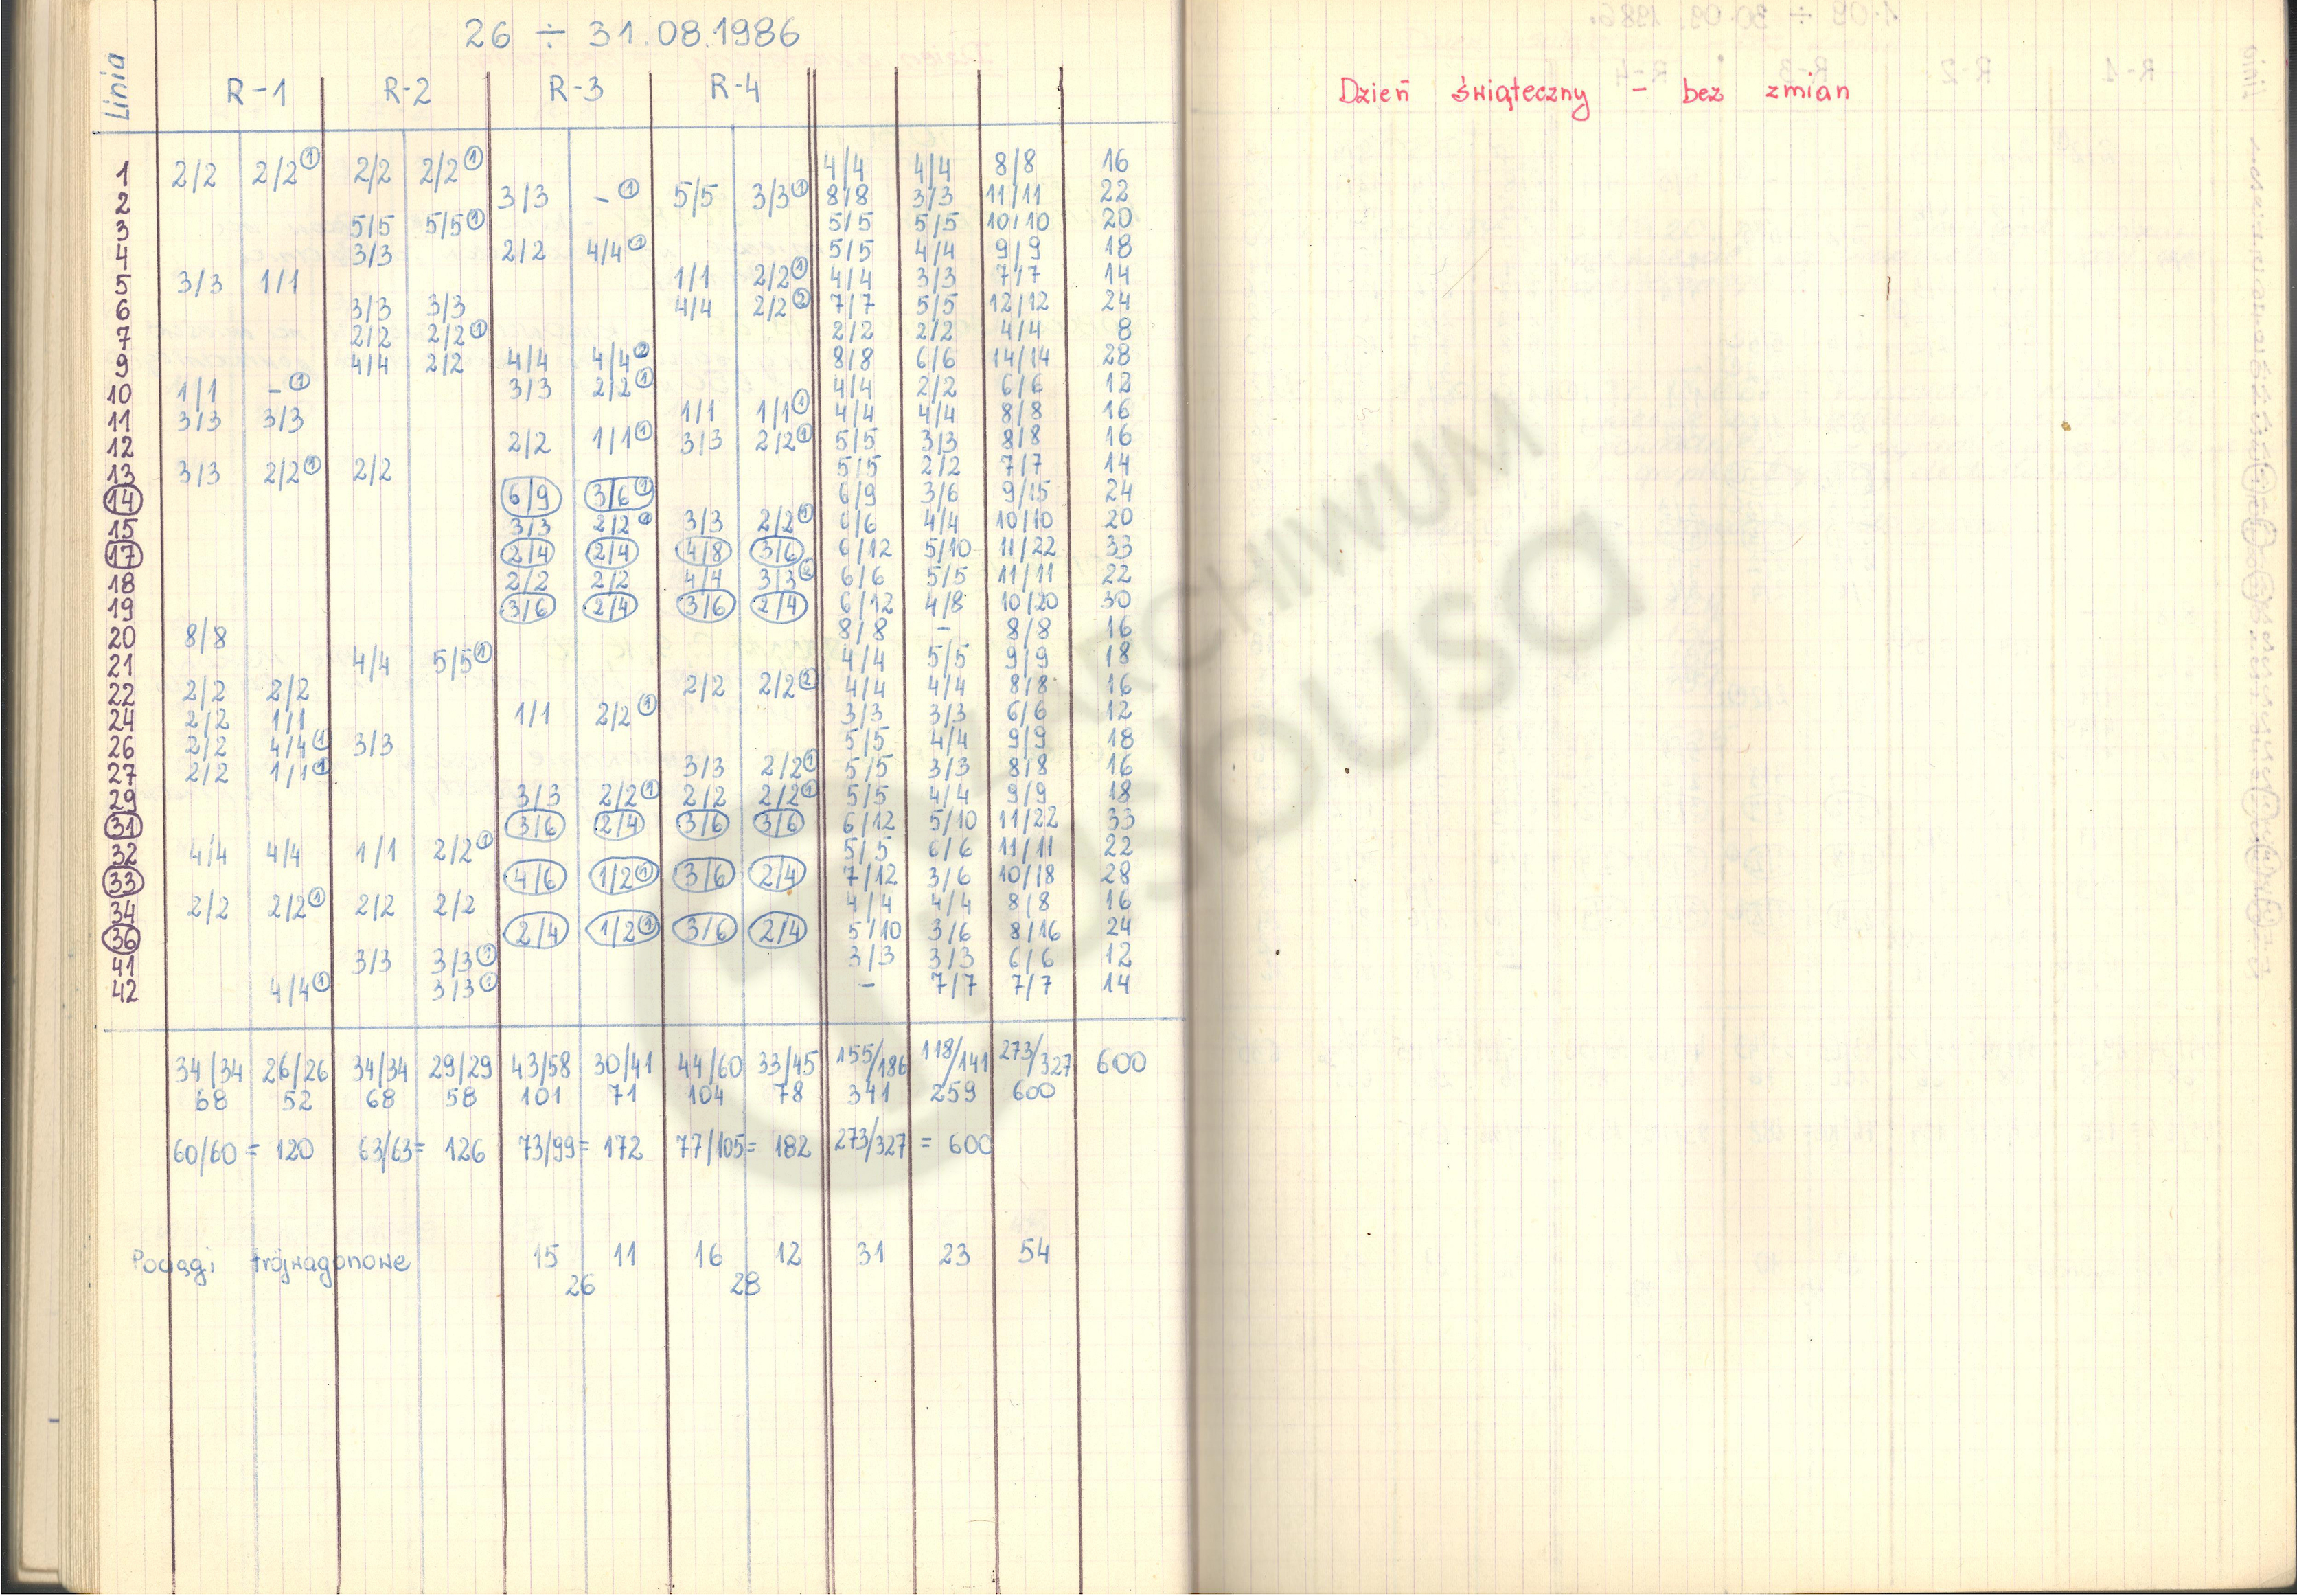 26 ÷ 31.08.1986
Linia R-1 R-2 R-3 R-4
1 2/2 2/2 ① 2/2 2/2 ① 4/4 4/4 8/8 16
2 3/3 - ① 5/5 3/3 ① 8/8 3/3 11/11 22
3 5/5 5/5 ① 5/5 5/5 10/10 20
4 3/3 2/2 4/4 ① 5/5 4/4 9/9 18
5 3/3 1/1 1/1 2/2 ① 4/4 3/3 7/7 14
6 3/3 3/3 4/4 2/2 ② 7/7 5/5 12/12 24
7 2/2 2/2 ① 2/2 2/2 4/4 8
9 4/4 2/2 4/4 4/4 ② 8/8 6/6 14/14 28
10 1/1 - ① 3/3 2/2 ① 4/4 2/2 6/6 12
11 3/3 3/3 1/1 1/1 ① 4/4 4/4 8/8 16
12 2/2 1/1 ① 3/3 2/2 ① 5/5 3/3 8/8 16
13 3/3 2/2 ① 2/2 5/5 2/2 7/7 14
14 6/9 3/6 ① 6/9 3/6 9/15 24
15 3/3 2/2 ① 3/3 2/2 ① 6/6 4/4 10/10 20
17 2/4 2/4 4/8 3/6 6/12 5/10 11/22 33
18 2/2 2/2 4/4 3/3 ② 6/6 5/5 11/11 22
19 3/6 2/4 3/6 2/4 6/12 4/8 10/20 30
20 8/8 8/8 - 8/8 16
21 4/4 5/5 ① 4/4 5/5 9/9 18
22 2/2 2/2 2/2 2/2 ② 4/4 4/4 8/8 16
24 2/2 1/1 1/1 2/2 ① 3/3 3/3 6/6 12
26 2/2 4/4 ① 3/3 5/5 4/4 9/9 18
27 2/2 1/1 ① 3/3 2/2 ① 5/5 3/3 8/8 16
29 3/3 2/2 ① 2/2 2/2 ① 5/5 4/4 9/9 18
31 3/6 2/4 3/6 3/6 6/12 5/10 11/22 33
32 4/4 4/4 1/1 2/2 ① 5/5 6/6 11/11 22
33 4/6 1/2 ① 3/6 2/4 7/12 3/6 10/18 28
34 2/2 2/2 ① 2/2 2/2 4/4 4/4 8/8 16
36 2/4 1/2 ① 3/6 2/4 5/10 3/6 8/16 24
41 3/3 3/3 ① 3/3 3/3 6/6 12
42 4/4 ① 3/3 ① - 7/7 7/7 14
34/34 26/26 34/34 29/29 43/58 30/41 44/60 33/45 155/186 118/141 273/327 600
68 52 68 58 101 71 104 78 341 259 600
60/60 = 120 63/63 = 126 73/99 = 172 77/105 = 182 273/327 = 600
Pociągi trójwagonowe 15 11 16 12 31 23 54
26 28
Dzień świąteczny - bez zmian
ARCHIWUM